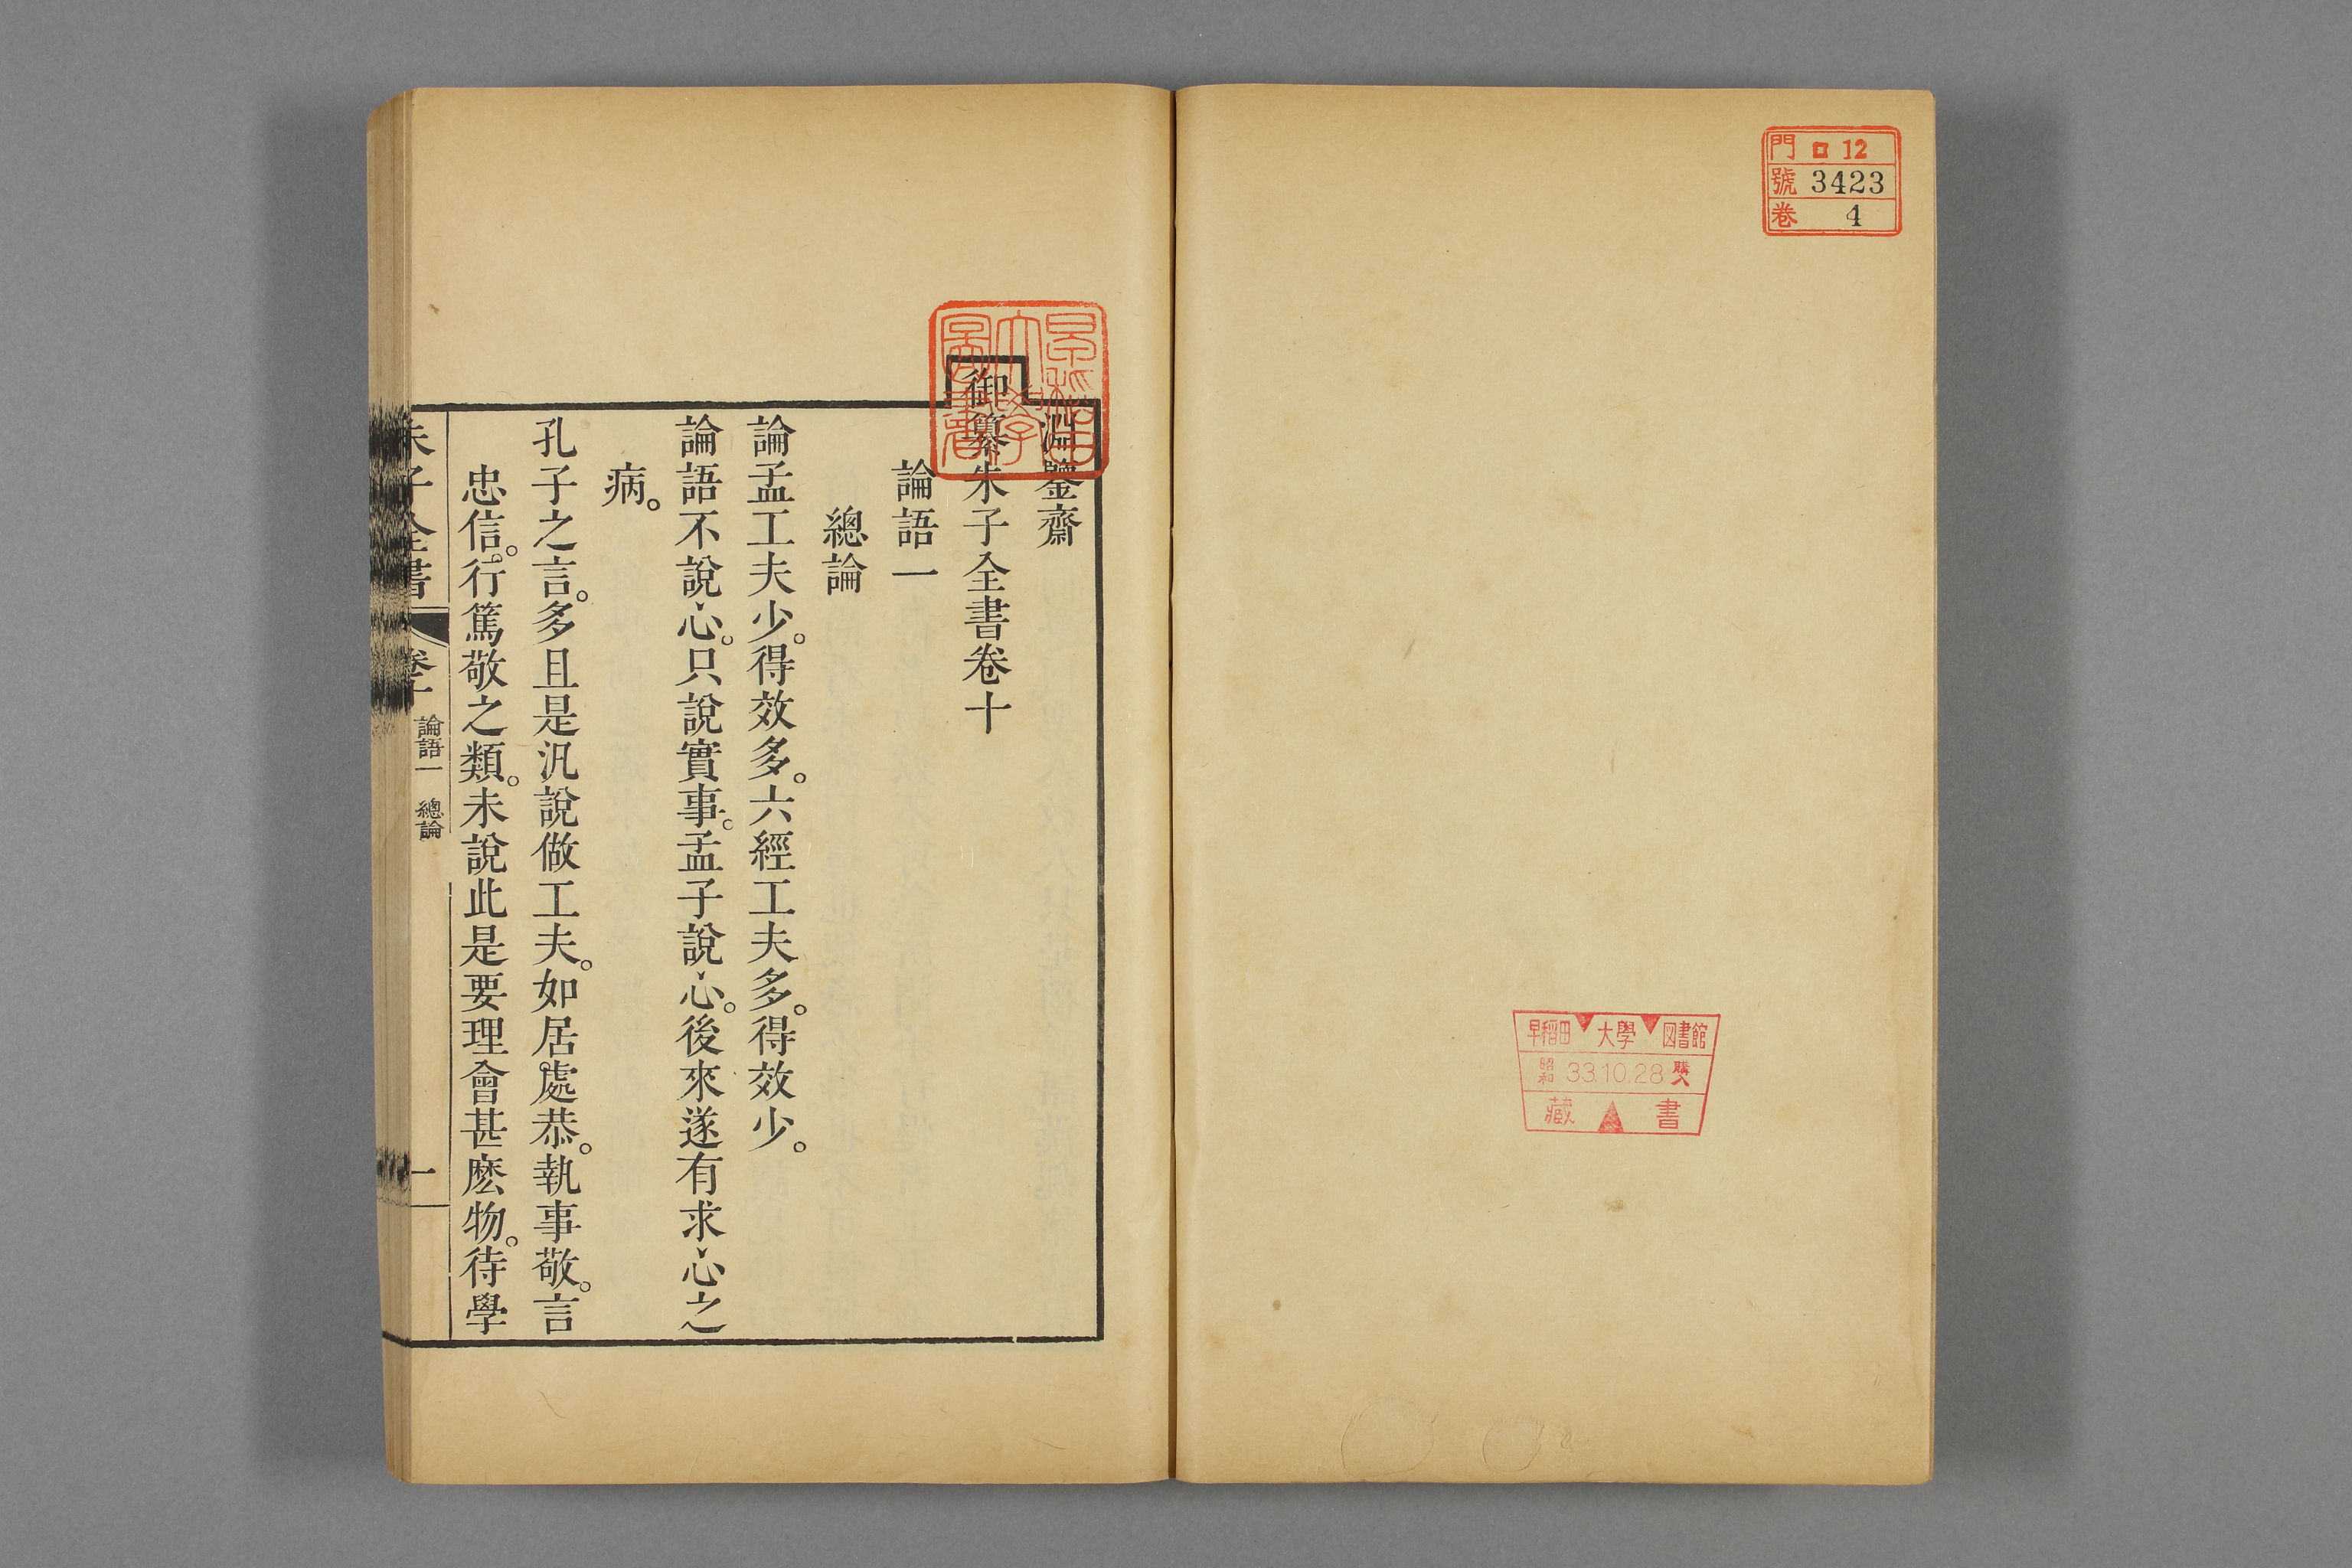 門 ロ 12
號 3423
卷 4
早稻田 大學 図書館
昭和 33.10.28 購入
藏 書
早稲田
大學
圖書
淵鑒齋
御纂朱子全書卷十
論語一
總論
論孟工夫少。得效多。六經工夫多。得效少。
論語不說心。只說實事。孟子說心。後來遂有求心之
病。
孔子之言。多且是汎說做工夫。如居處恭。執事敬。言
忠信。行篤敬之類。未說此是要理會甚麽物。待學
朱子全書 卷十 論語一 總論 一